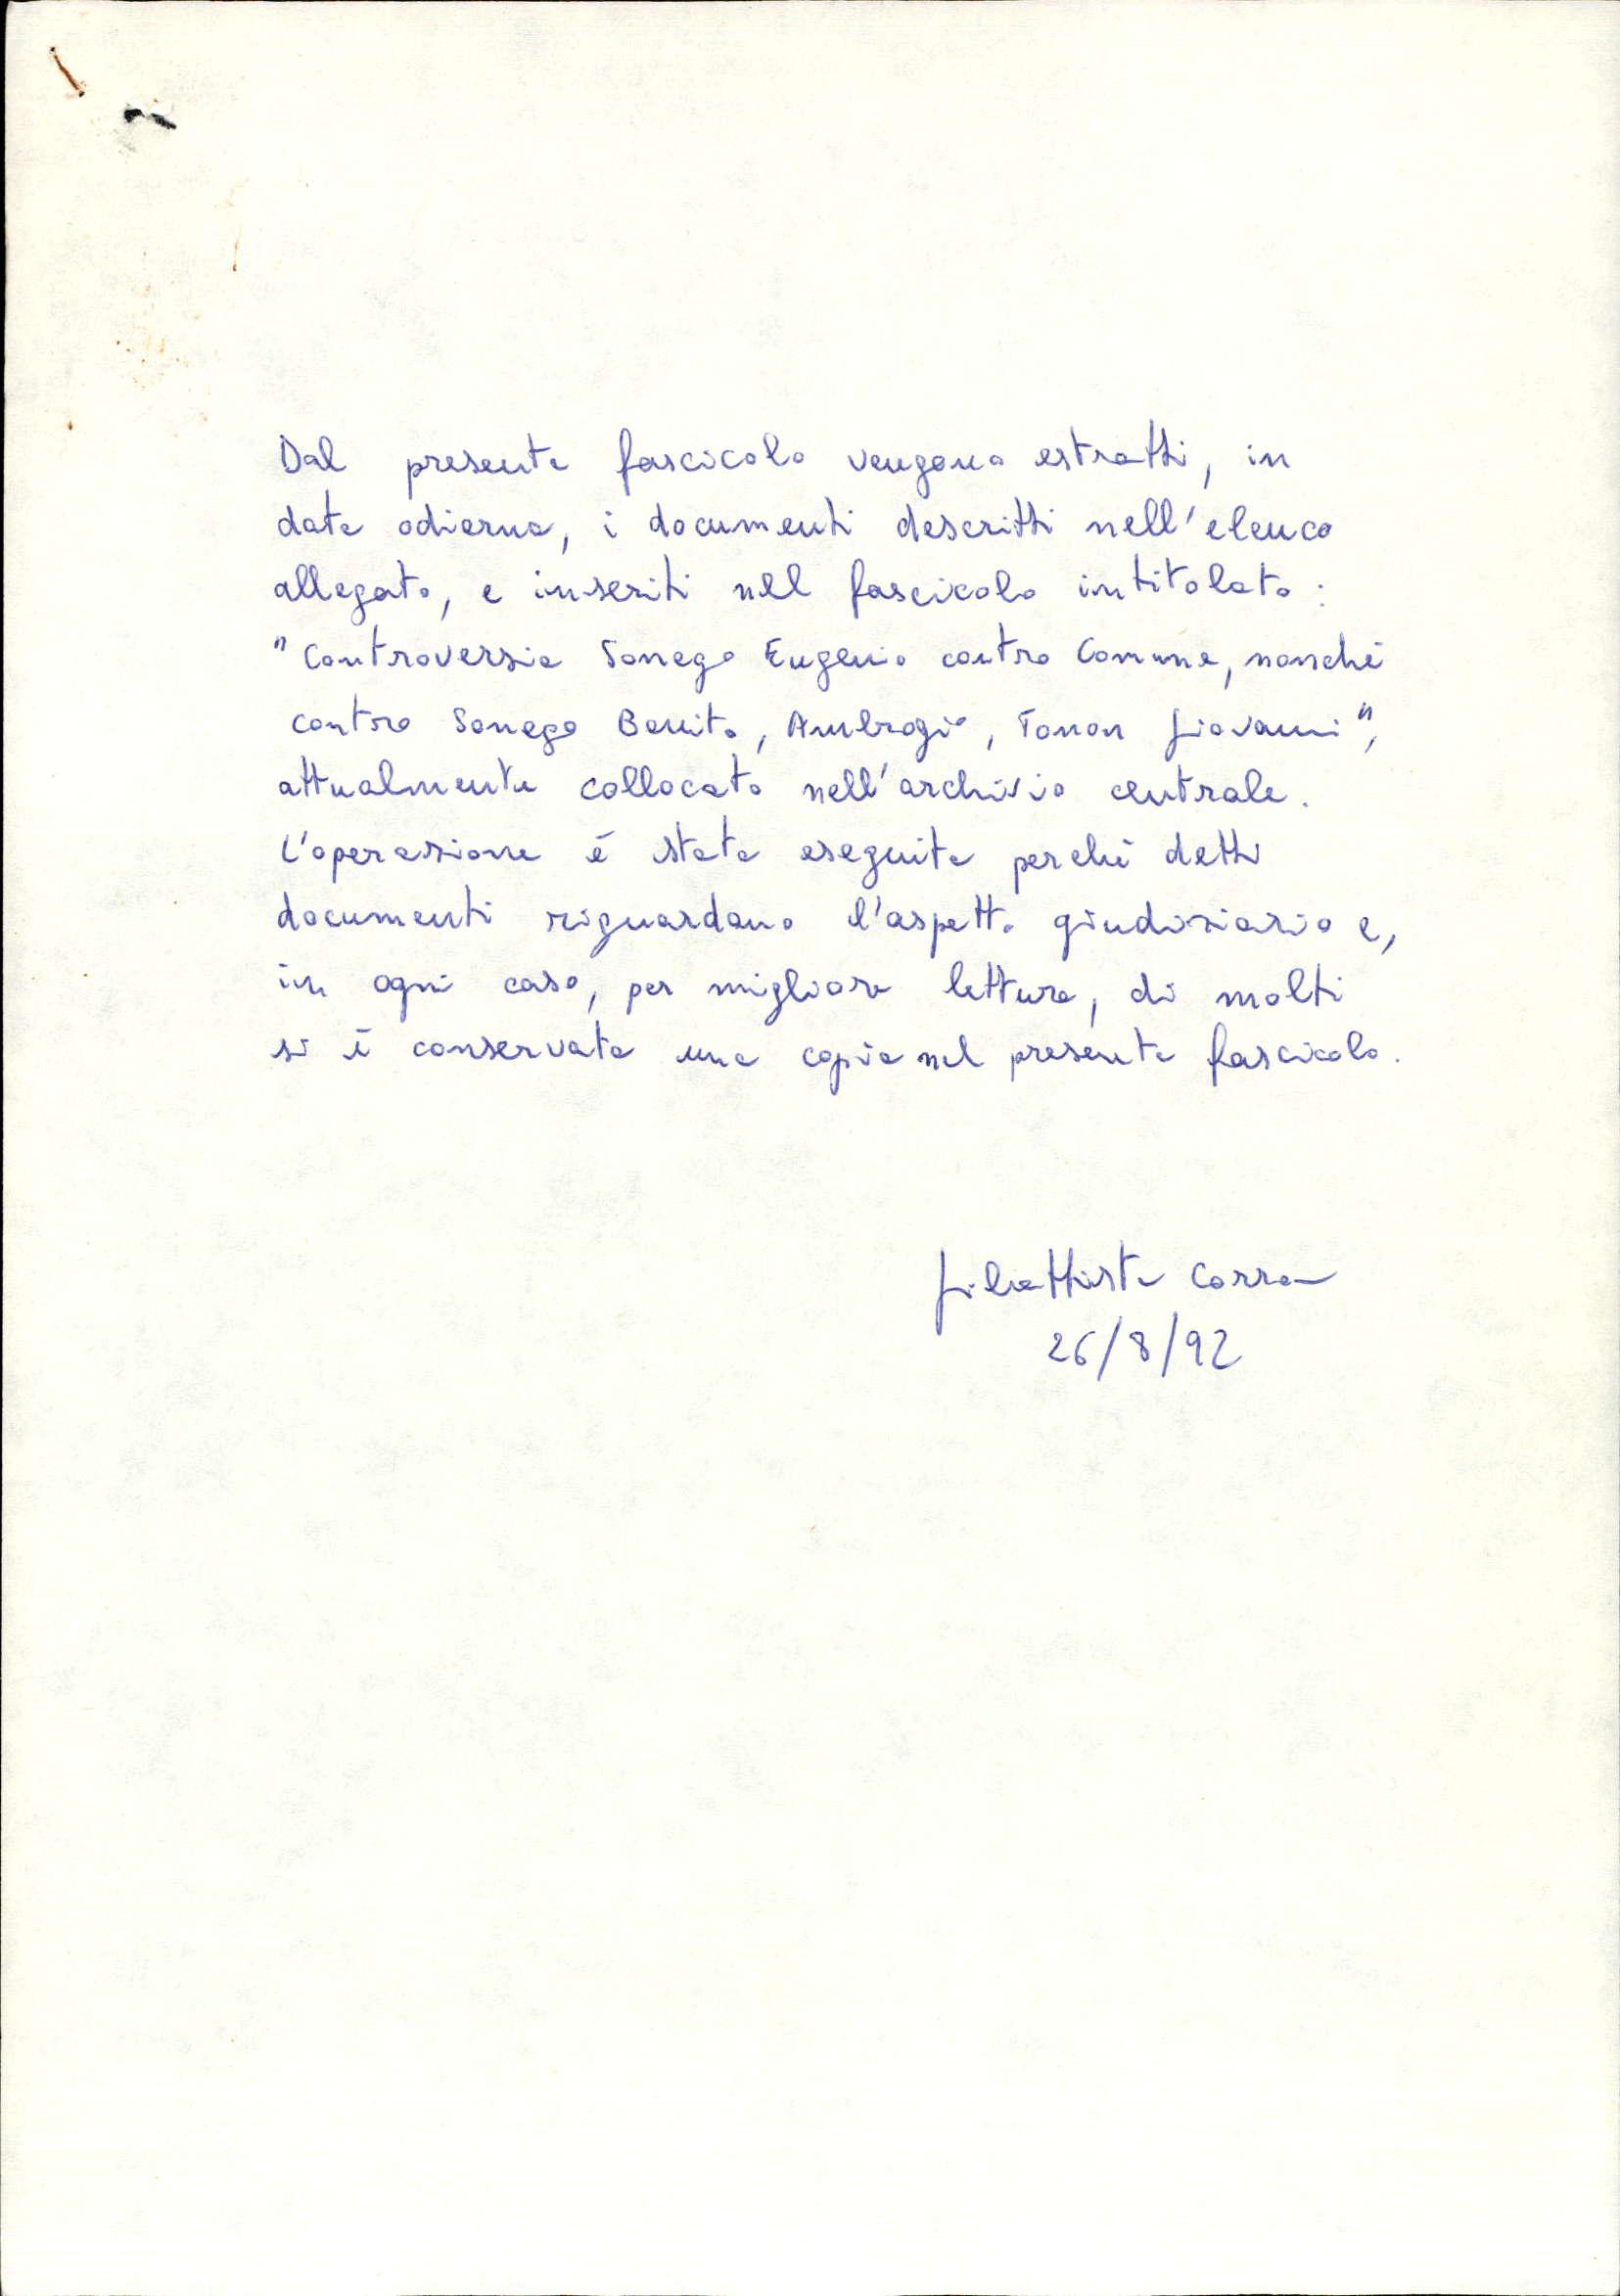 Dal presente fascicolo vengono estratti, in
data odierna, i documenti descritti nell'elenco
allegato, e inseriti nel fascicolo intitolato:
"Controversia Sonego Eugenio contro Comune, nonché
contro Sonego Benito, Ambrogio, Tonon Giovanni",
attualmente collocato nell'archivio centrale.
L'operazione è stata eseguita perché detti
documenti riguardano l'aspetto giudiziario e,
in ogni caso, per migliore lettura, di molti
si è conservata una copia nel presente fascicolo.
Gibattista
26/8/92